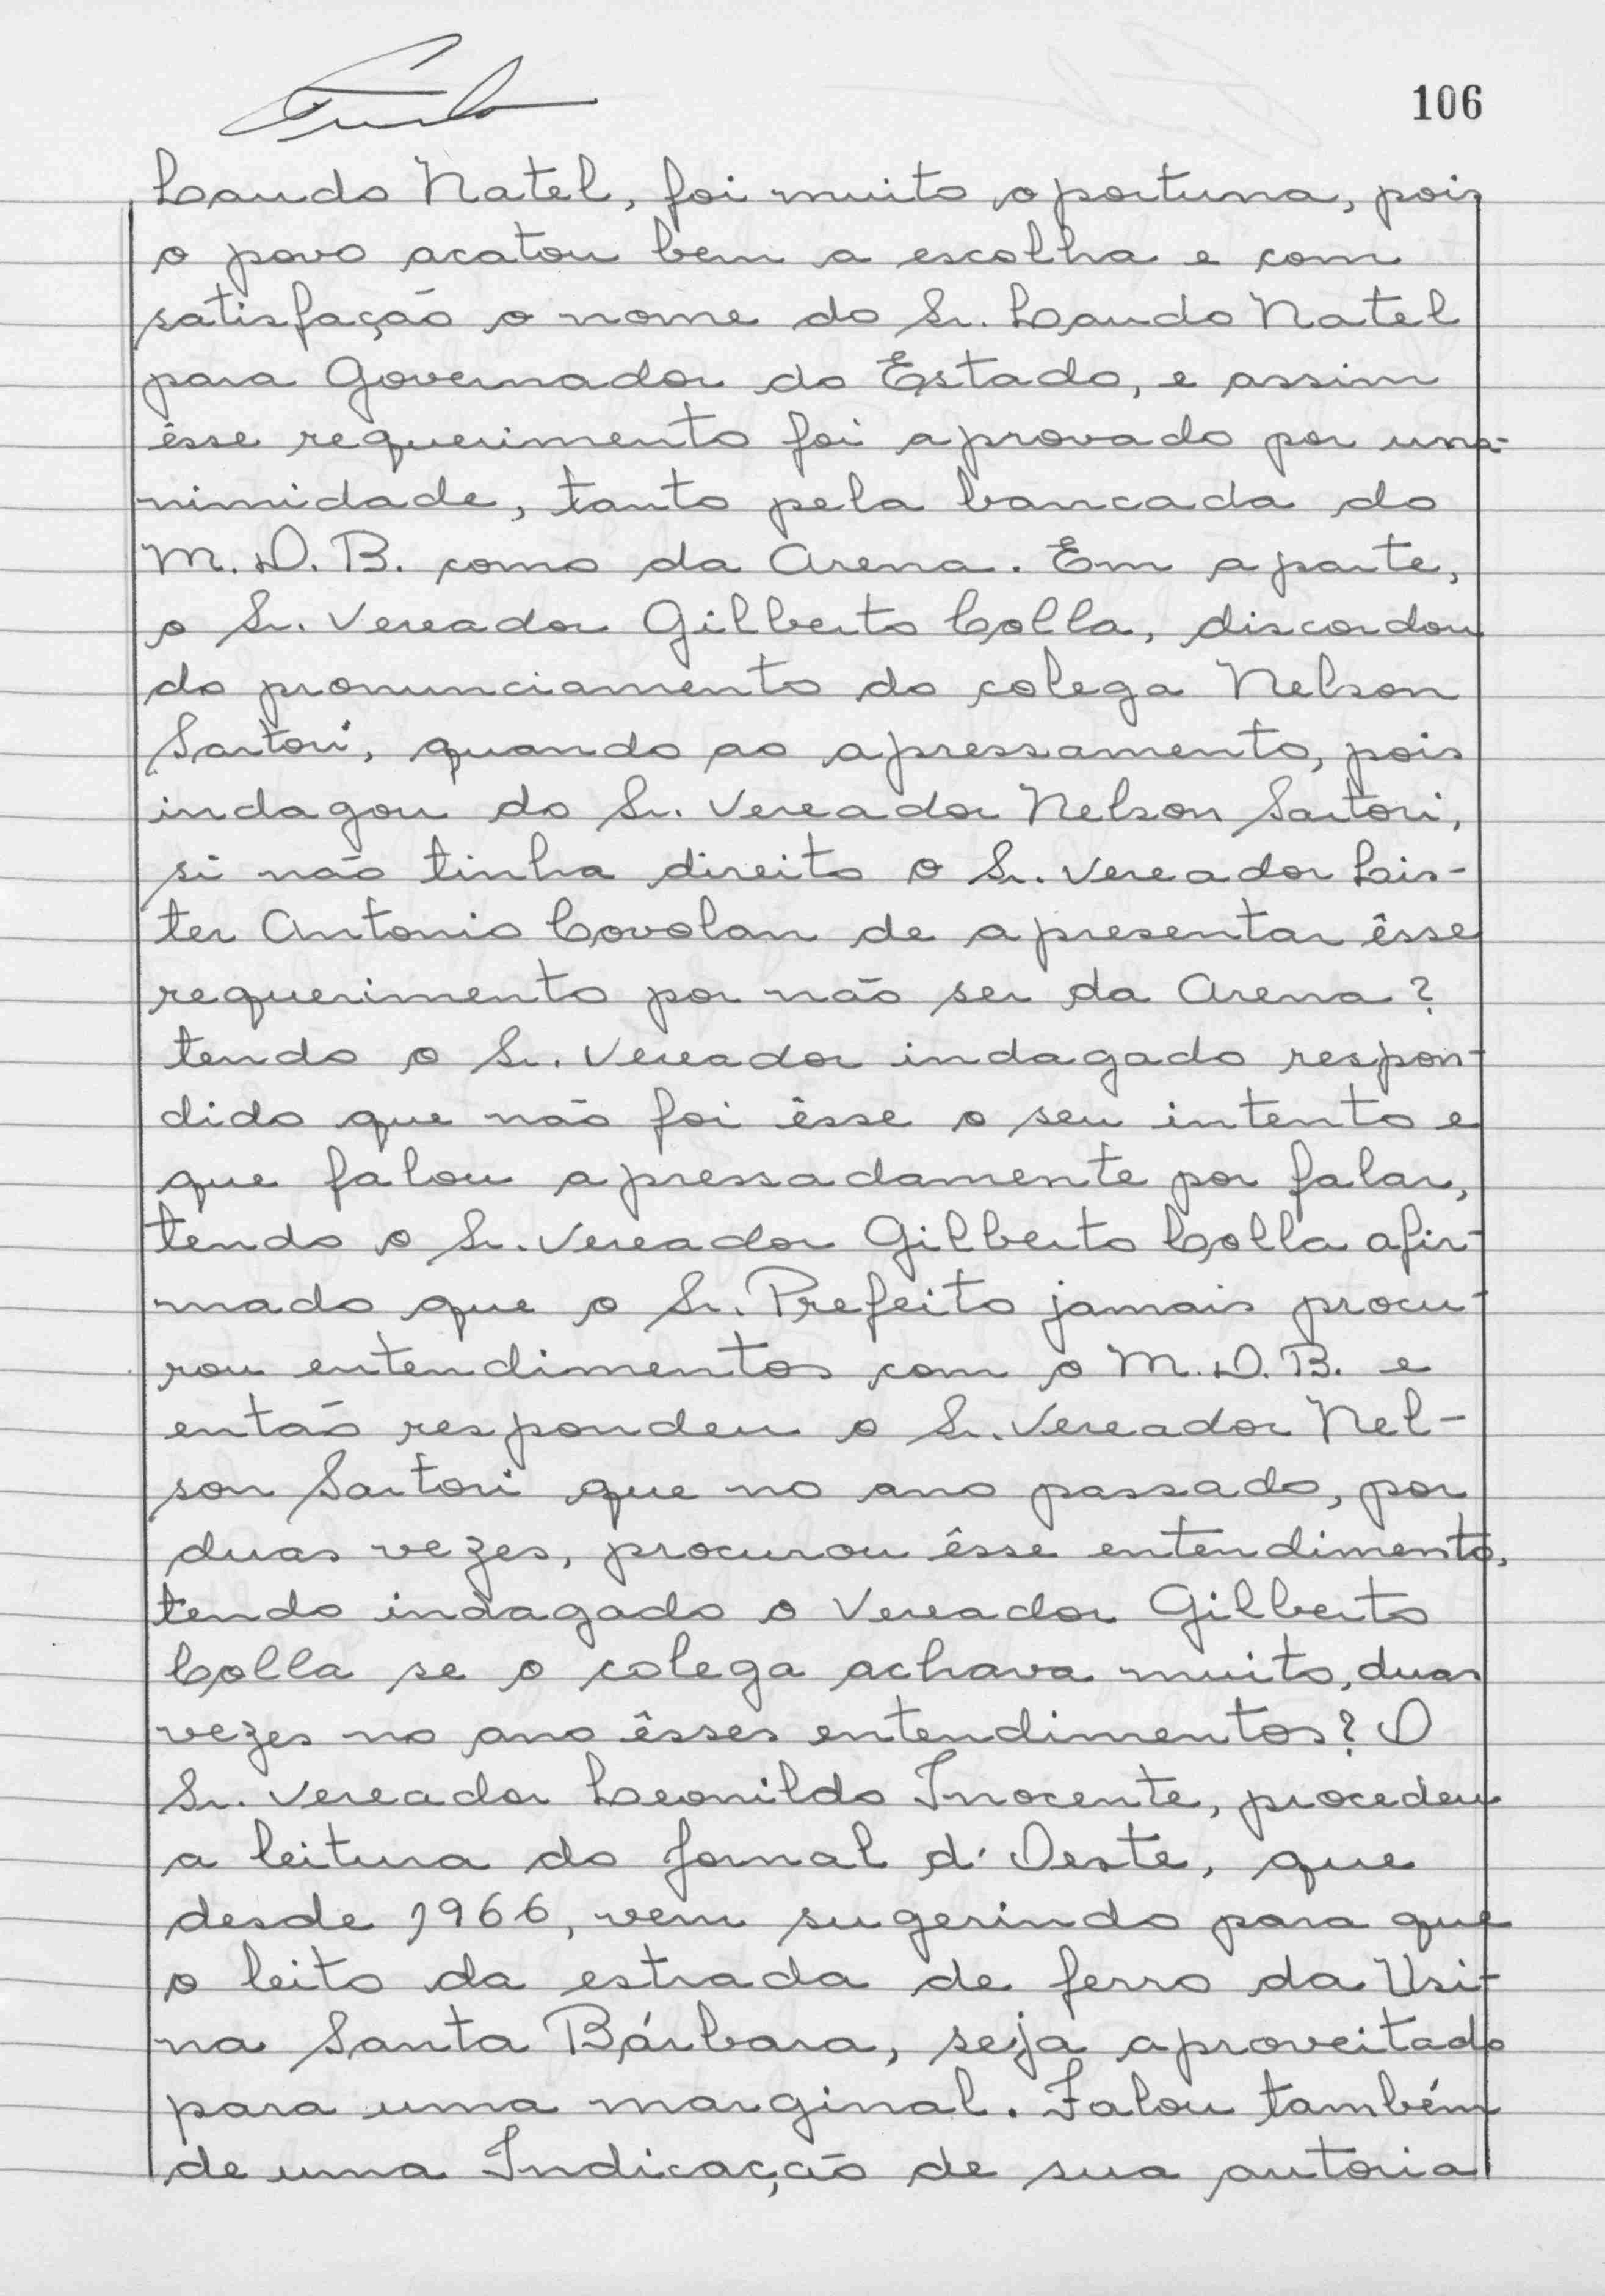 106
Laudo Natel, foi muito oportuna, pois
o povo acatou bem a escolha e com
satisfação o nome do Sr. Laudo Natel
para Governador do Estado, e assim
êsse requerimento foi aprovado por una-
nimidade, tanto pela bancada do
M.D.B. como da Arena. Em aparte,
o Sr. Vereador Gilberto Colla, discordou
do pronunciamento do colega Nelson
Sartori, quando ao apressamento, pois
indagou do Sr. Vereador Nelson Sartori,
si não tinha direito o Sr. Vereador Lis-
ter Antonio Covolan de apresentar êsse
requerimento por não ser da Arena?
tendo o Sr. Vereador indagado respon-
dido que não foi êsse o seu intento e
que falou apressadamente por falar,
tendo o Sr. Vereador Gilberto Colla afir-
mado que o Sr. Prefeito jamais procu-
rou entendimentos com o M.D.B. e
então respondeu o Sr. Vereador Nel-
son Sartori que no ano passado, por
duas vezes, procurou êsse entendimento,
tendo indagado o Vereador Gilberto
Colla se o colega achava muito, duas
vezes no ano êsses entendimentos? O
Sr. Vereador Leonildo Inocente, procedeu
a leitura do Jornal d'Oeste, que
desde 1966, vem sugerindo para que
o leito da estrada de ferro da Usi-
na Santa Bárbara, seja aproveitado
para uma marginal. Falou também
de uma Indicação de sua autoria